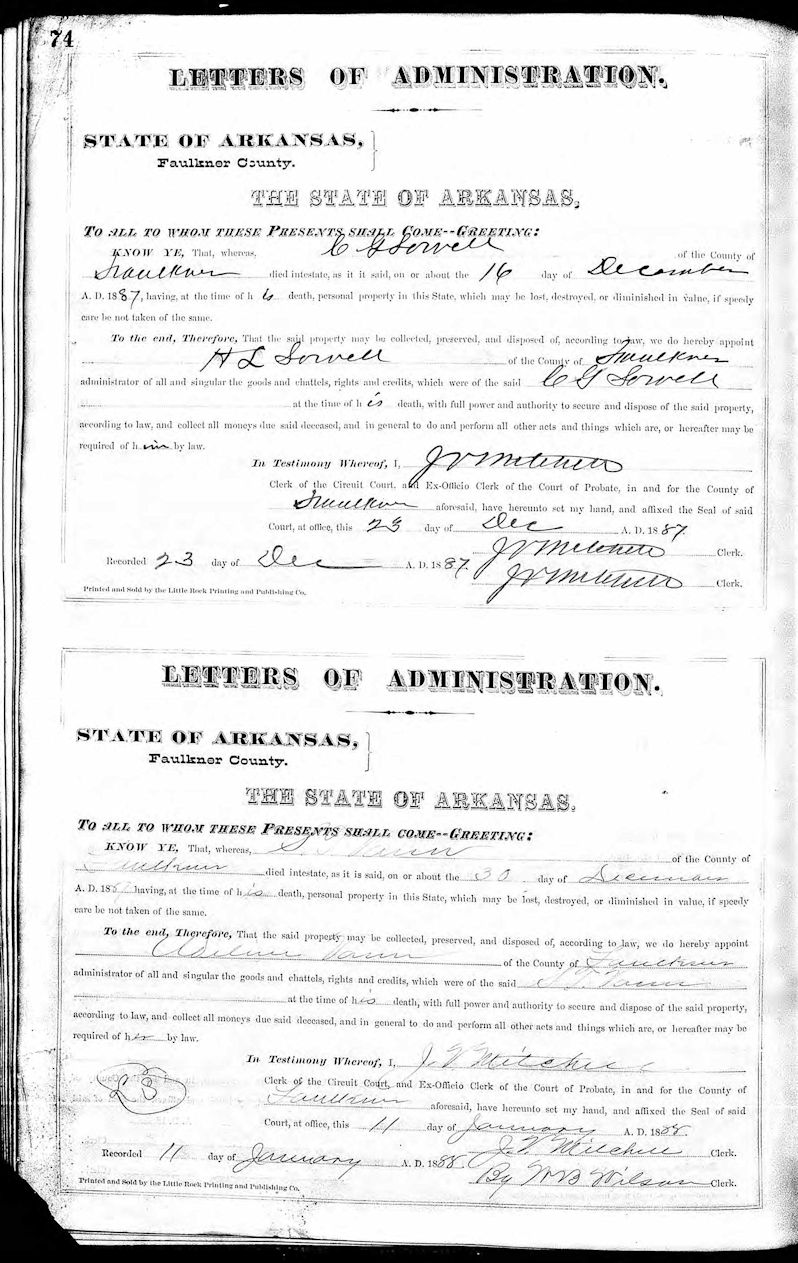 74
LETTERS OF ADMINISTRATION.
STATE OF ARKANSAS,
Faulkner County.
THE STATE OF ARKANSAS,
TO ALL TO WHOM THESE PRESENTS SHALL COME--GREETING:
KNOW YE, That, whereas, C G Sowell of the County of
Faulkner died intestate, as it it said, on or about the 16 day of December
A. D. 1887, having, at the time of his death, personal property in this State, which may be lost, destroyed, or diminished in value, if speedy
care be not taken of the same.
To the end, Therefore, That the said property may be collected, preserved, and disposed of, according to law, we do hereby appoint
H L Sowell of the County of Faulkner
administrator of all and singular the goods and chattels, rights and credits, which were of the said C G Sowell
at the time of his death, with full power and authority to secure and dispose of the said property,
according to law, and collect all moneys due said deceased, and in general to do and perform all other acts and things which are, or hereafter may be
required of him by law.
In Testimony Whereof, I, J V Mitchell
Clerk of the Circuit Court, and Ex-Officio Clerk of the Court of Probate, in and for the County of
Faulkner aforesaid, have hereunto set my hand, and affixed the Seal of said
Court, at office, this 23 day of Dec A. D. 1887.
J V Mitchell Clerk.
Recorded 23 day of Dec A. D. 1887.
J V Mitchell Clerk.
Printed and Sold by the Little Rock Printing and Publishing Co.
LETTERS OF ADMINISTRATION.
STATE OF ARKANSAS,
Faulkner County.
THE STATE OF ARKANSAS,
TO ALL TO WHOM THESE PRESENTS SHALL COME--GREETING:
KNOW YE, That, whereas, S. T. Vann of the County of
Faulkner died intestate, as it is said, on or about the 30 day of December
A. D. 1887 having, at the time of his death, personal property in this State, which may be lost, destroyed, or diminished in value, if speedy
care be not taken of the same.
To the end, Therefore, That the said property may be collected, preserved, and disposed of, according to law, we do hereby appoint
Vann of the County of Faulkner
administrator of all and singular the goods and chattels, rights and credits, which were of the said S. T. Vann
at the time of his death, with full power and authority to secure and dispose of the said property,
according to law, and collect all moneys due said deceased, and in general to do and perform all other acts and things which are, or hereafter may be
required of her by law.
In Testimony Whereof, I, J. V. Mitchell
LS
Clerk of the Circuit Court, and Ex-Officio Clerk of the Court of Probate, in and for the County of
Faulkner aforesaid, have hereunto set my hand, and affixed the Seal of said
Court, at office, this 11 day of January A. D. 1888.
J. V. Mitchell Clerk.
Recorded 11 day of January A. D. 1888
By W B Wilson Clerk.
Printed and Sold by the Little Rock Printing and Publishing Co.